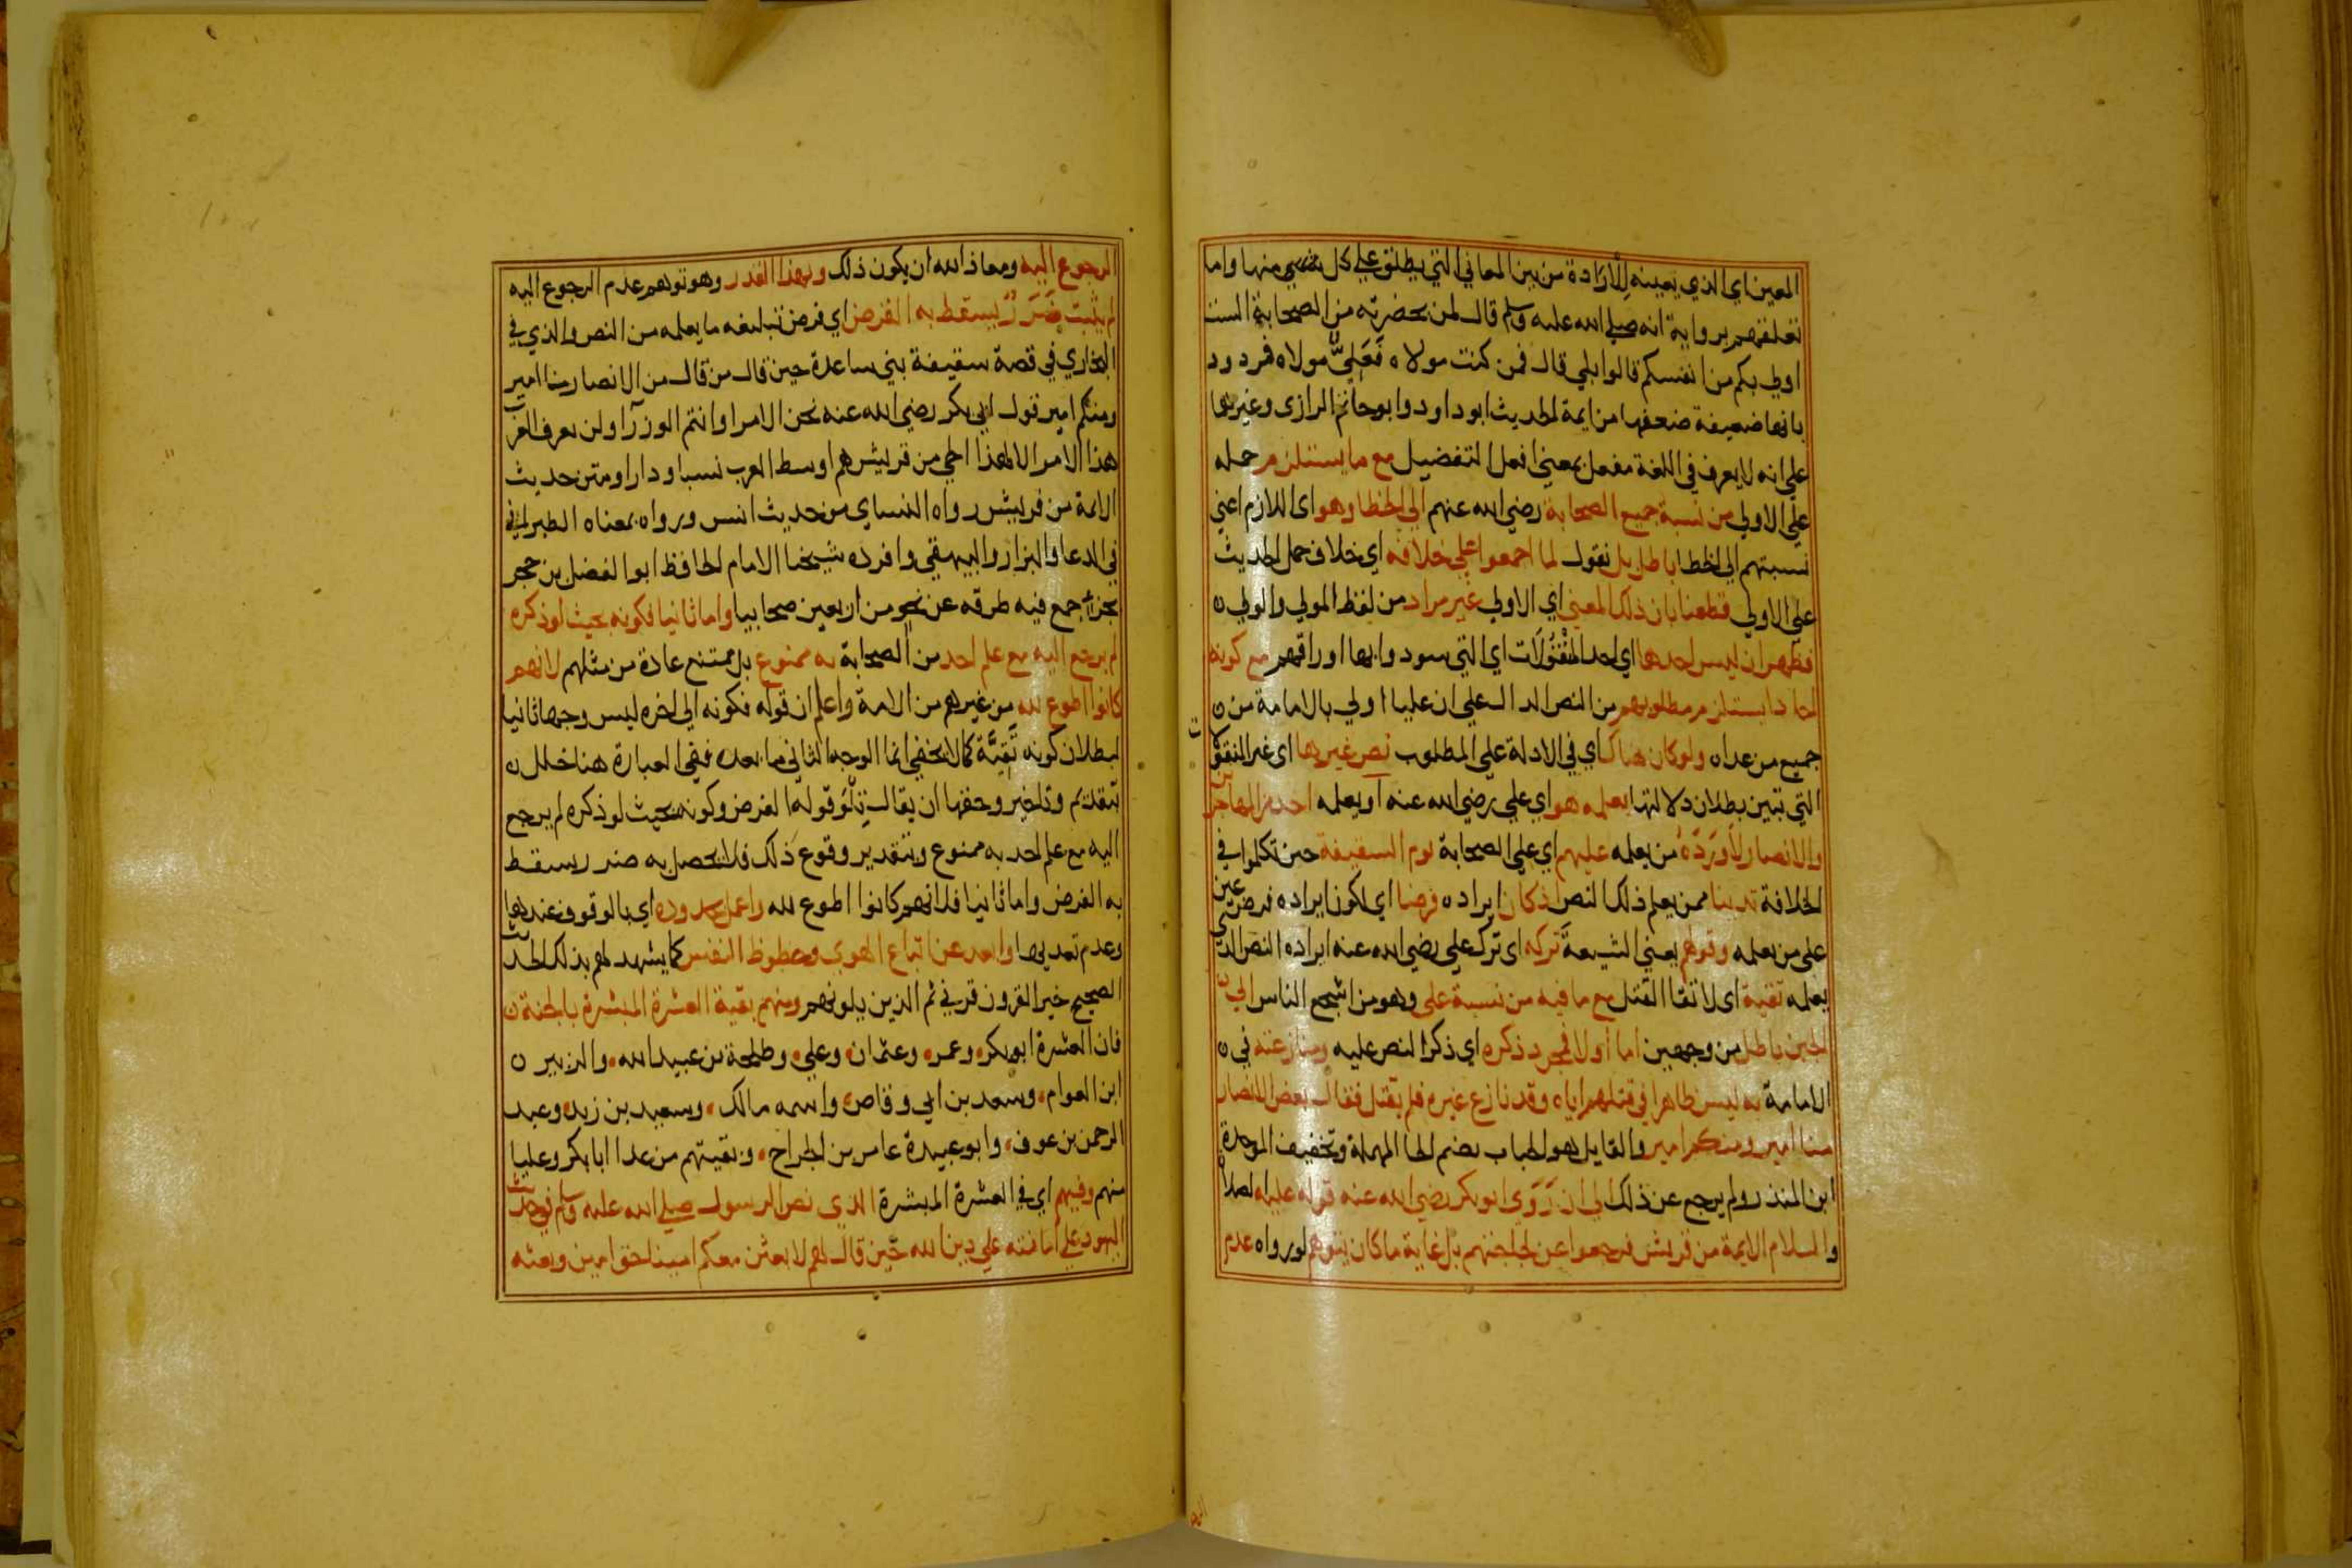 المعين اي الذي يعينه لِلْارَادة من بين المعاني التي يطلق علي كل منها واما
تعلقهم برواية انه صلي الله عليه وسلم قال لمن بحضرته من الصحابة الست
اولي بكم من انفسكم قالوا بلي قال فمن كنت مولاه فَعَلِيٌّ مولاه فمردود
بانها ضعيفة ضعفها من ايمة الحديث ابو داود وابو حاتم الرازي وغيرهما
علي انه لا يعرف في اللغة مفعل بمعني افعل التفضيل مع ما يستلزم حمله
علي الاولي من نسبة جميع الصحابة رضي الله عنهم الي الخطا وهو اي اللازم اعني
نسبتهم الي الخطا باطل بل نقول لما اجمعوا علي خلافه اي خلاف حمل الحديث
علي الاولي قطعنا بان ذلك المعني اي الاولي غير مراد من لفظ المولي والولي ن
فظهر ان ليس احدها اي احد المَنْقُولَات اي التي سودوا بها اوراقهم مع كونه
احادا يستلزم مطلوبهم من النص الدال علي ان عليا اولي بالامامة من ن
جميع من عداه ولو كان هناك اي في الادلة علي المطلوب نص غيرها اي غير المنقولات
التي تبين بطلان دلالتها يعلمه هو اي علي رضي الله عنه او يعلمه احد من المهاجرين
والانصار لَاَوْرَدَهُ من يعلمه عليهم اي علي الصحابة يوم السقيفة حين تكلموا في
الخلافة تدينا ممن يعلم ذلك النص اذ كان ايراده فرضا اي لكون ايراده فرض عين
علي من يعلمه وقولهم يعني الشيعة تركه اي ترك علي رضي الله عنه ايراده النص الذي
يعلمه تقية اي لاتقا القتل مع ما فيه من نسبة علي وهو من اشجع الناس الي ن
الجبن باطل من وجهين اما اولا فمجرد ذكره اي ذكر النص عليه ومنازعته في ن
الامامة به ليس ظاهرا في قتلهم اياه وقد نازع غيره فلم يقتل فقال بعض الانصار
منا امير ومنكم امير والقايل هو الحباب بضم الحا المهملة وتخفيف الموحدة
ابن المنذر ولم يرجع عن ذلك الي ان رَوَي ابو بكر رضي الله عنه قوله عليه الصلاة
والسلام الايمة من قريش فرجعوا عن لجلجتهم بل غاية ما كان يتوهم لو رواه عدم
الرجوع اليه ومعاذ الله ان يكون ذلك وبهذا القدر وهو توهم عدم الرجوع اليه
لم يثبت ضَرَرٌ يسقط به الفرض اي فرض تبليغه ما يعلمه من النص والذي في
البخاري في قصة سقيفة بني ساعدة حين قال من قال من الانصار منا امير
ومنكم امير قول ابي بكر رضي الله عنه نحن الامرا وانتم الوزرآ ولن يعرف العرب
هذا الامر الا لهذا الحي من قريش هم اوسط العرب نسبا ودارا ومتن حديث
الايمة من قريش رواه النساي من حديث انس ورواه بمعناه الطبراني
في الدعا والبزار والبيهقي وافرده شيخنا الامام الحافظ ابو الفضل بن حجر
بجزء جمع فيه طرقه عن نحو من اربعين صحابيا واما ثانيا فكونه بحيث لو ذكره
لم يرجع اليه مع علم احد من الصحابة به ممنوع بل ممتنع عادة من مثلهم لانهم
كانوا اطوع لله من غيرهم من الامة واعلم ان قوله فكونه الي اخره ليس وجها ثانيا
لبطلان كونه تَقِيَّة كما لا يخفي انما الوجه الثاني ما بعده ففي العبارة هنا خلل ن
بتقديم وتاخير وحقها ان يقال تِلْوَ قوله الفرض وكونه بحيث لو ذكره لم يرجع
اليه مع علم احد به ممنوع وبتقدير وقوع ذلك فلا يحصل به ضرر يسقط
به الفرض واما ثانيا فلانهم كانوا اطوع لله واعمل بحدوده اي بالوقوف عندها
وعدم تعديها وابعد عن اتباع الهوي وحظوظ النفس كما يشهد لهم بذلك الحديث
الصحيح خير القرون قرني ثم الذين يلونهم ومنهم بقية العشرة المبشرة بالجنة ن
فان العشرة ابو بكر وعمر وعثمان وعلي وطلحة بن عبيد الله والزبير ن
ابن العوام وسعد بن ابي وقاص واسمه مالك وسعيد بن زيد وعبد
الرحمن بن عوف وابو عبيدة عامر بن الجراح وبقيتهم من عدا ابا بكر وعليا
منهم وفيهم اي في العشرة المبشرة الذي نص الرسول صلي الله عليه وسلم في حديث
اليهود علي امانته علي دين الله حين قال لهم لابعثن معكم امينا حق امين وبعثه